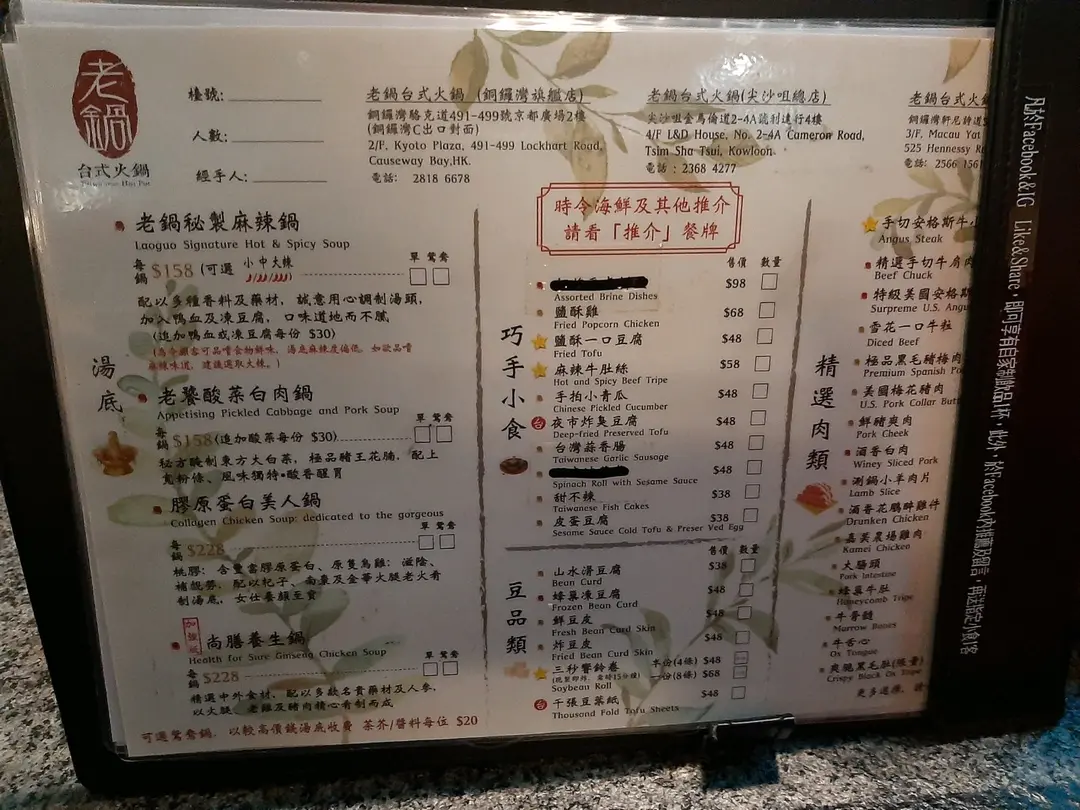 老鍋
台式火鍋
Taiwanese Hot Pot
檯號:
人數:
經手人:
老鍋台式火鍋 (銅鑼灣旗艦店)
銅鑼灣駱克道491-499號京都廣場2樓
(銅鑼灣C出口對面)
2/F, Kyoto Plaza, 491-499 Lockhart Road,
Causeway Bay,HK.
電話: 2818 6678
老鍋台式火鍋(尖沙咀總店)
尖沙咀金馬倫道2-4A號利達行4樓
4/F L&D House, No. 2-4A Cameron Road,
Tsim Sha Tsui, Kowloon
電話: 2368 4277
老鍋台式火
銅鑼灣軒尼詩道
3/F, Macau Yat
525 Hennessy R
電話: 2566 1561
湯底
老鍋秘製麻辣鍋
Laoguo Signature Hot & Spicy Soup
每鍋 $158 (可選 小中大辣 單 鴛鴦
配以多種香料及藥材, 誠意用心調制湯頭,
加入鴨血及凍豆腐, 口味道地而不膩
(追加鴨血或凍豆腐每份 $30)
(為令顧客可品嚐食物鮮味, 湯底麻辣度偏低, 如欲品嚐
麻辣味道, 建議選取大辣。)
老饕酸菜白肉鍋
Appetising Pickled Cabbage and Pork Soup
每鍋 $158(追加酸菜每份 $30) 單 鴛鴦
秘方醃制東方大白菜, 極品豬王花腩, 配上
寬粉條、風味獨特•酸香醒胃
膠原蛋白美人鍋
Collagen Chicken Soup: dedicated to the gorgeous
每鍋 $228 單 鴛鴦
桃膠: 含豐富膠原蛋白、原隻烏雞: 滋陰、
補脫勞, 配以杞子、南棗及金華火腿老火肴
制湯底, 女仕養顏至賞
加強版
尚膳養生鍋
Health for Sure Ginseng Chicken Soup
每鍋 $228 單 鴛鴦
精選中外食材, 配以多款名貴藥材及人參,
以火腿、老雞及豬肉精心肴制而成
可選鴛鴦鍋, 以較高價錢湯底收費 茶芥/醬料每位 $20
時令海鮮及其他推介
請看「推介」餐牌
巧手小食
售價 數量
Assorted Brine Dishes $98
鹽酥雞
Fried Popcorn Chicken $68
鹽酥一口豆腐
Fried Tofu $48
麻辣牛肚絲
Hot and Spicy Beef Tripe $58
手拍小青瓜
Chinese Pickled Cucumber $48
台 夜市炸臭豆腐
Deep-fried Preserved Tofu $48
台灣蒜香腸
Taiwanese Garlic Sausage $48
Spinach Roll with Sesame Sauce $48
甜不辣
Taiwanese Fish Cakes $38
皮蛋豆腐
Sesame Sauce Cold Tofu & Preser Ved Egg $38
豆品類
售價 數量
山水滑豆腐
Bean Curd $38
蜂巢凍豆腐
Frozen Bean Curd $48
鮮豆皮
Fresh Bean Curd Skin $48
炸豆皮
Fried Bean Curd Skin $48
三秒響鈴卷 半份(4條) $48
Soybean Roll 一份(8條) $68
台 千張豆葉紙
Thousand Fold Tofu Sheets $48
精選肉類
手切安格斯牛小
Angus Steak
精選手切牛肩肉
Beef Chuck
特級美國安格斯
Surpreme U.S. Angu
雪花一口牛粒
Diced Beef
極品黑毛豬梅肉
Premium Spanish Po
美國梅花豬肉
U.S. Pork Collar Butt
鮮豬爽肉
Pork Cheek
酒香白肉
Winey Sliced Pork
涮鍋小羊肉片
Lamb Slice
酒香花鵰醉雞件
Drunken Chicken
嘉美農場雞肉
Kamei Chicken
大腸頭
Pork Intestine
蜂巢牛肚
Honeycomb Tripe
牛骨髓
Marrow Bones
牛舌心
Ox Tongue
爽脆黑毛肚(限量)
Crispy Black Ox Tripe
更多選擇, 請
凡於Facebook&IG Like&Share, 即可享有自家制飲品1杯, 此外, 於Facebook內推薦及留言, 再送指定小食1客